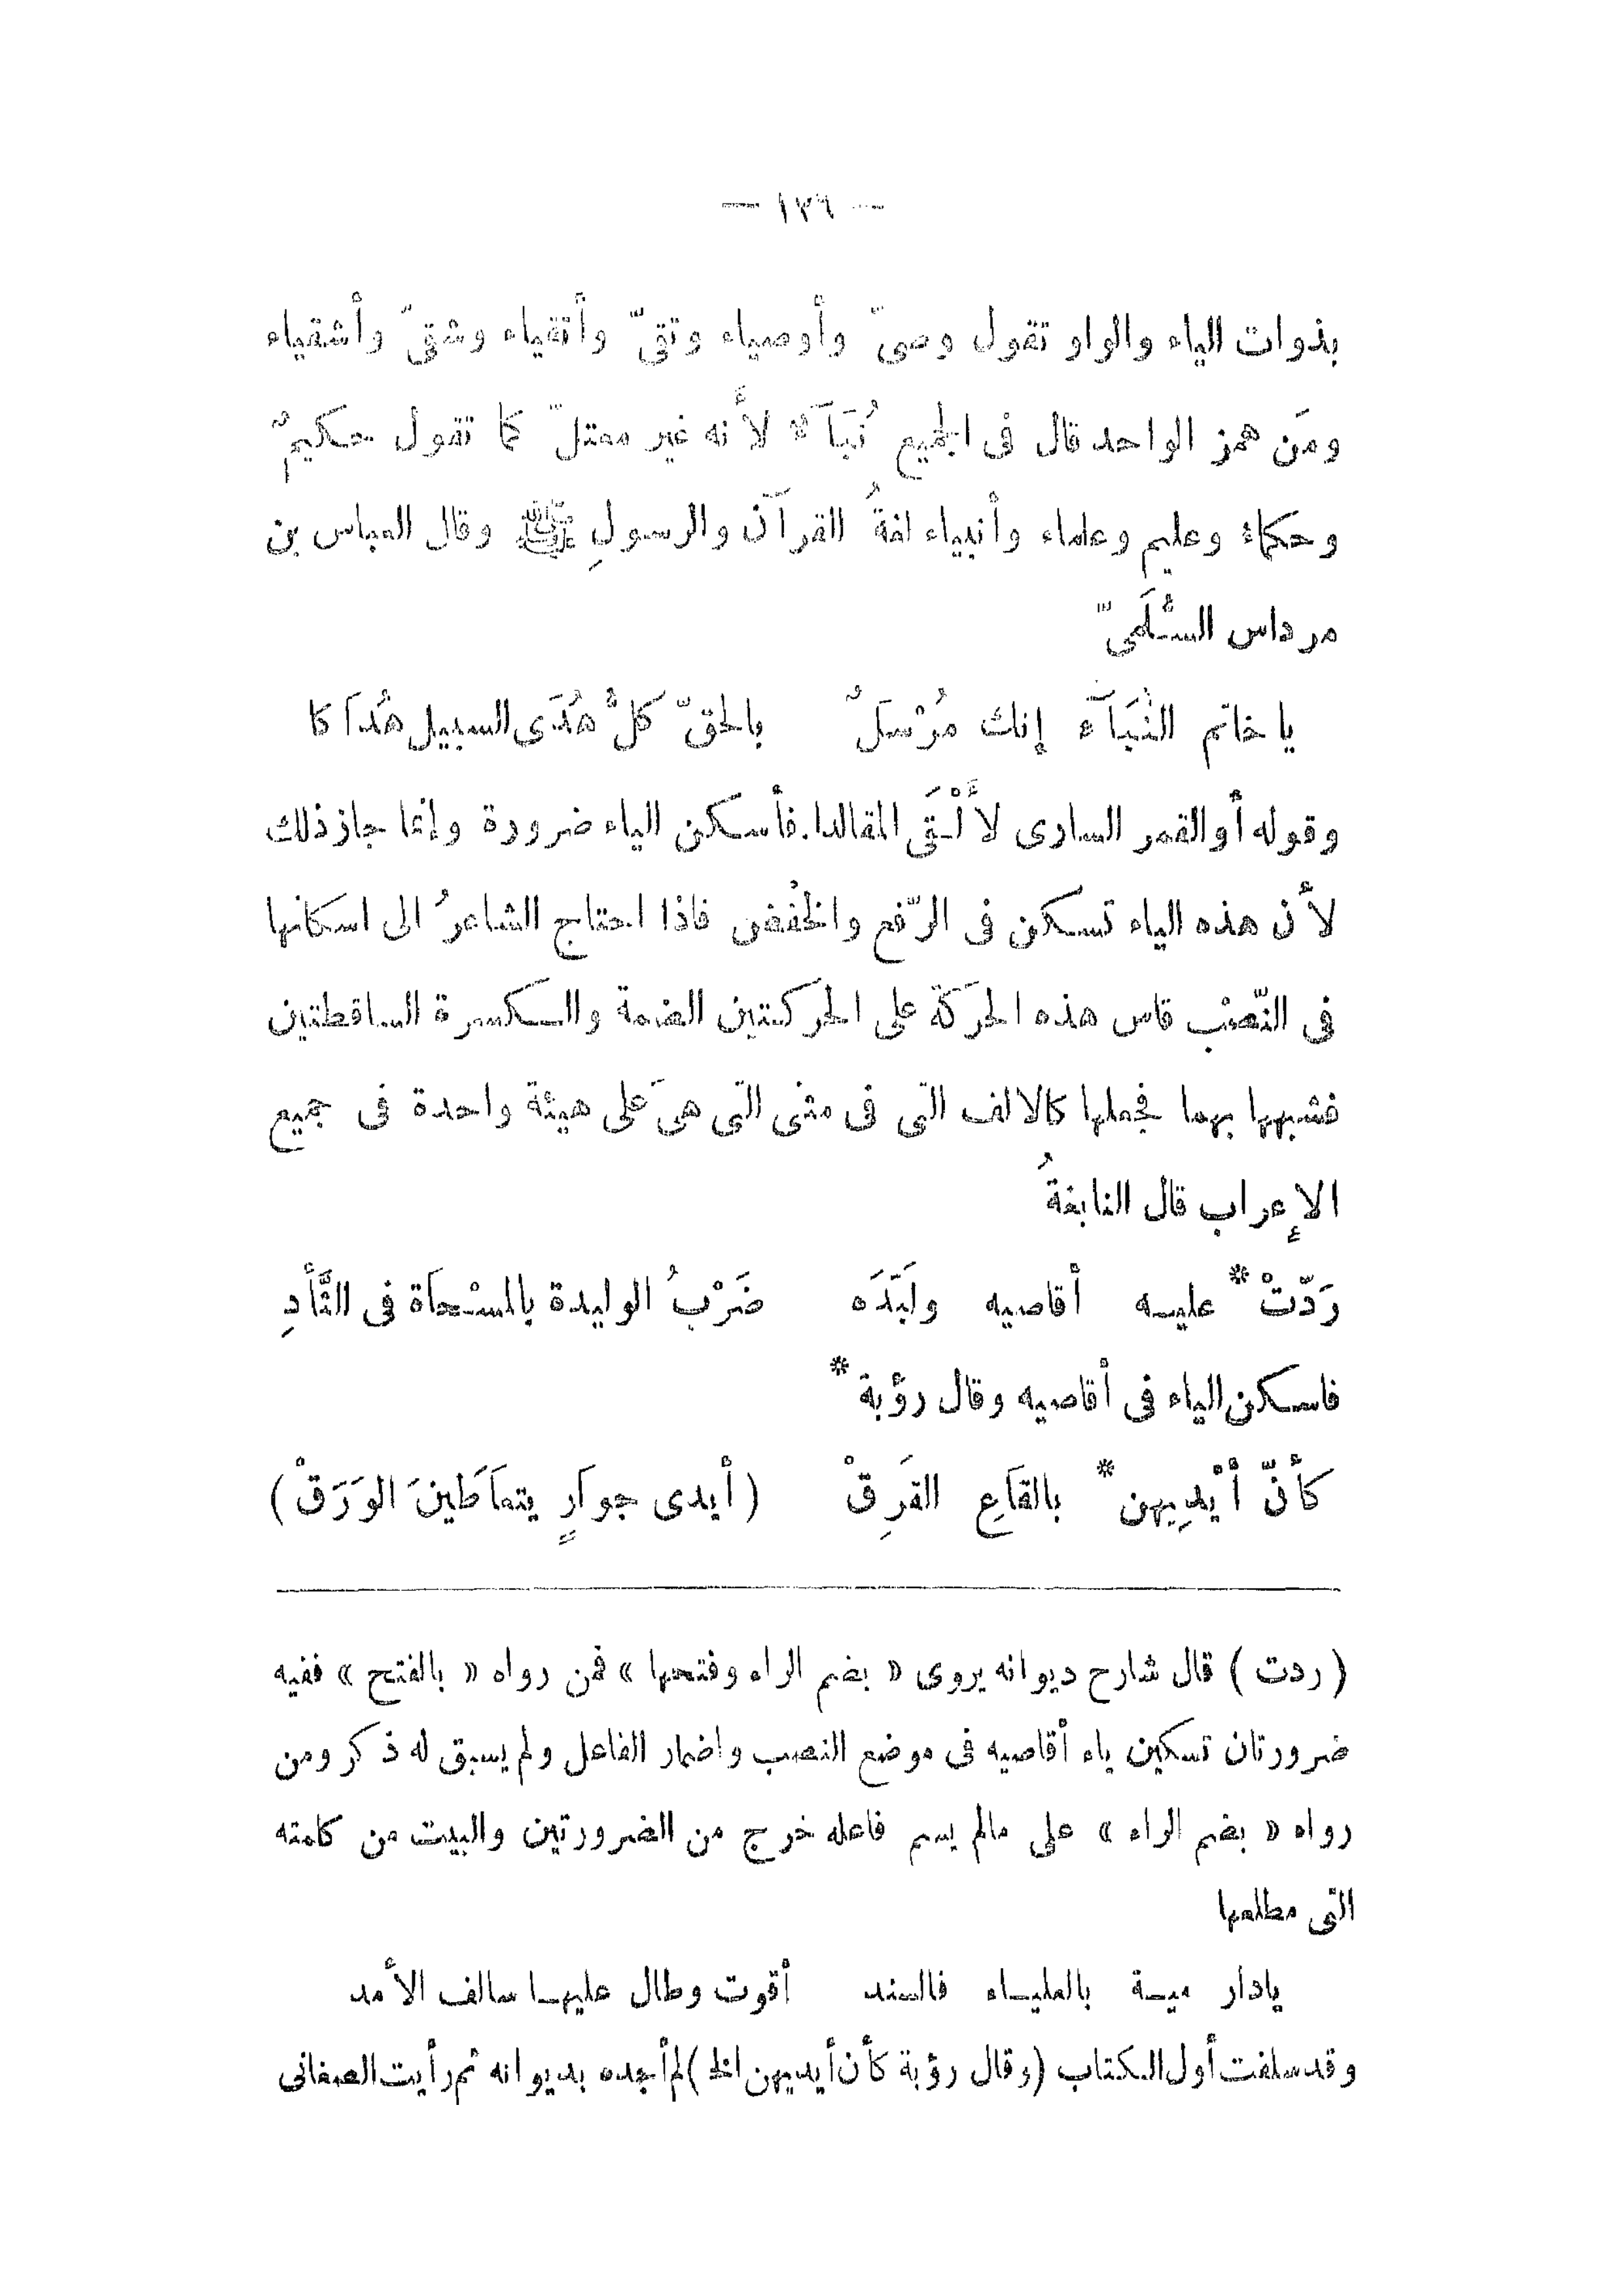 — ١٣٦ —
بذوات الياء والواو تقول وصىّ وأوصياء وتقىّ وأتقياء وشقىّ وأشقياء
ومَن همز الواحد قال فى الجميع نُبَآءُ لأنه غير معتلّ كما تقول حكيمٌ
وحكماءُ وعليم وعلماء وأنبياء لغةُ القرآن والرسولِ ﷺ وقال العباس بن
مرداس السُّلَمىّ
ياخاتم النُّبَآء إنك مُرْسَلٌ بالحقّ كلُّ هُدَى السبيل هُدَاكا
وقوله أوالقمر السارى لأَلْقَى المقالدا. فأسكن الياء ضرورة وإنما جازذلك
لأن هذه الياء تسكن فى الرّفع والخفْض فاذا احتاج الشاعرُ الى اسكانها
فى النّصْب قاس هذه الحرَكَةَ على الحركتين الضمة والكسرة الساقطتين
فشبهها بهما فجعلها كالالف التى فى مثنى التى هىَ على هيئة واحدة فى جميع
الإعراب قال النابغةُ
رَدّتْ* عليه أقاصيه ولَبَّدَه ضَرْبُ الوليدة بالمسْحاَة فى الثَّأدِ
فاسكن الياء فى أقاصيه وقال رؤبة*
كأنّ أيْدِيهن* بالقَاعِ القَرِقْ (أيدى جوَارٍ يتعاَطَينَ الوَرَقْ)
(ردت) قال شارح ديوانه يروى «بضم الراء وفتحها» فمن رواه «بالفتح» ففيه
ضرورتان تسكين ياء أقاصيه فى موضع النصب واضمار الفاعل ولم يسبق له ذكر ومن
رواه «بضم الراء» على مالم يسم فاعله خرج من الضرورتين والبيت من كلمته
التى مطلعها
يادار مية بالعلياء فالسند أقوت وطال عليها سالف الأمد
وقد سلفت أول الكتاب (وقال رؤبة كأن أيديهن الخ) لم أجده بديوانه ثم رأيت الصغانى